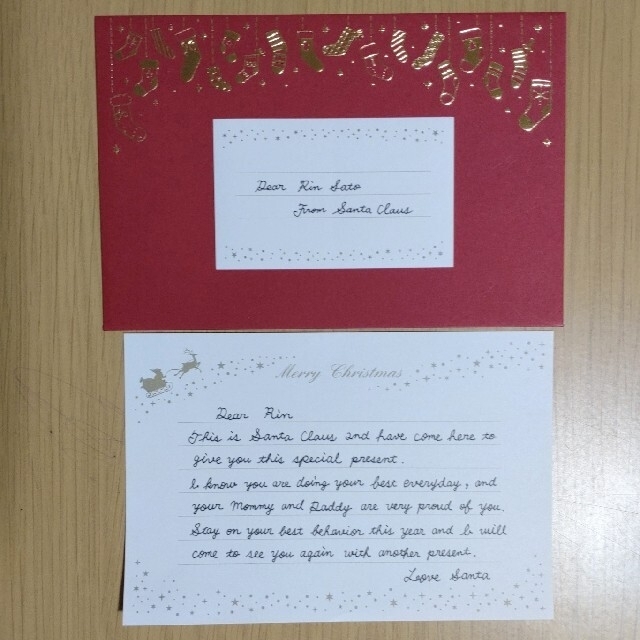 Dear Rin Sato
From Santa Claus
Merry Christmas
Dear Rin
This is Santa Claus and have come here to
give you this special present.
I know you are doing your best everyday, and
your Mommy and Daddy are very proud of you.
Stay on your best behavior this year and I will
come to see you again with another present.
Love Santa